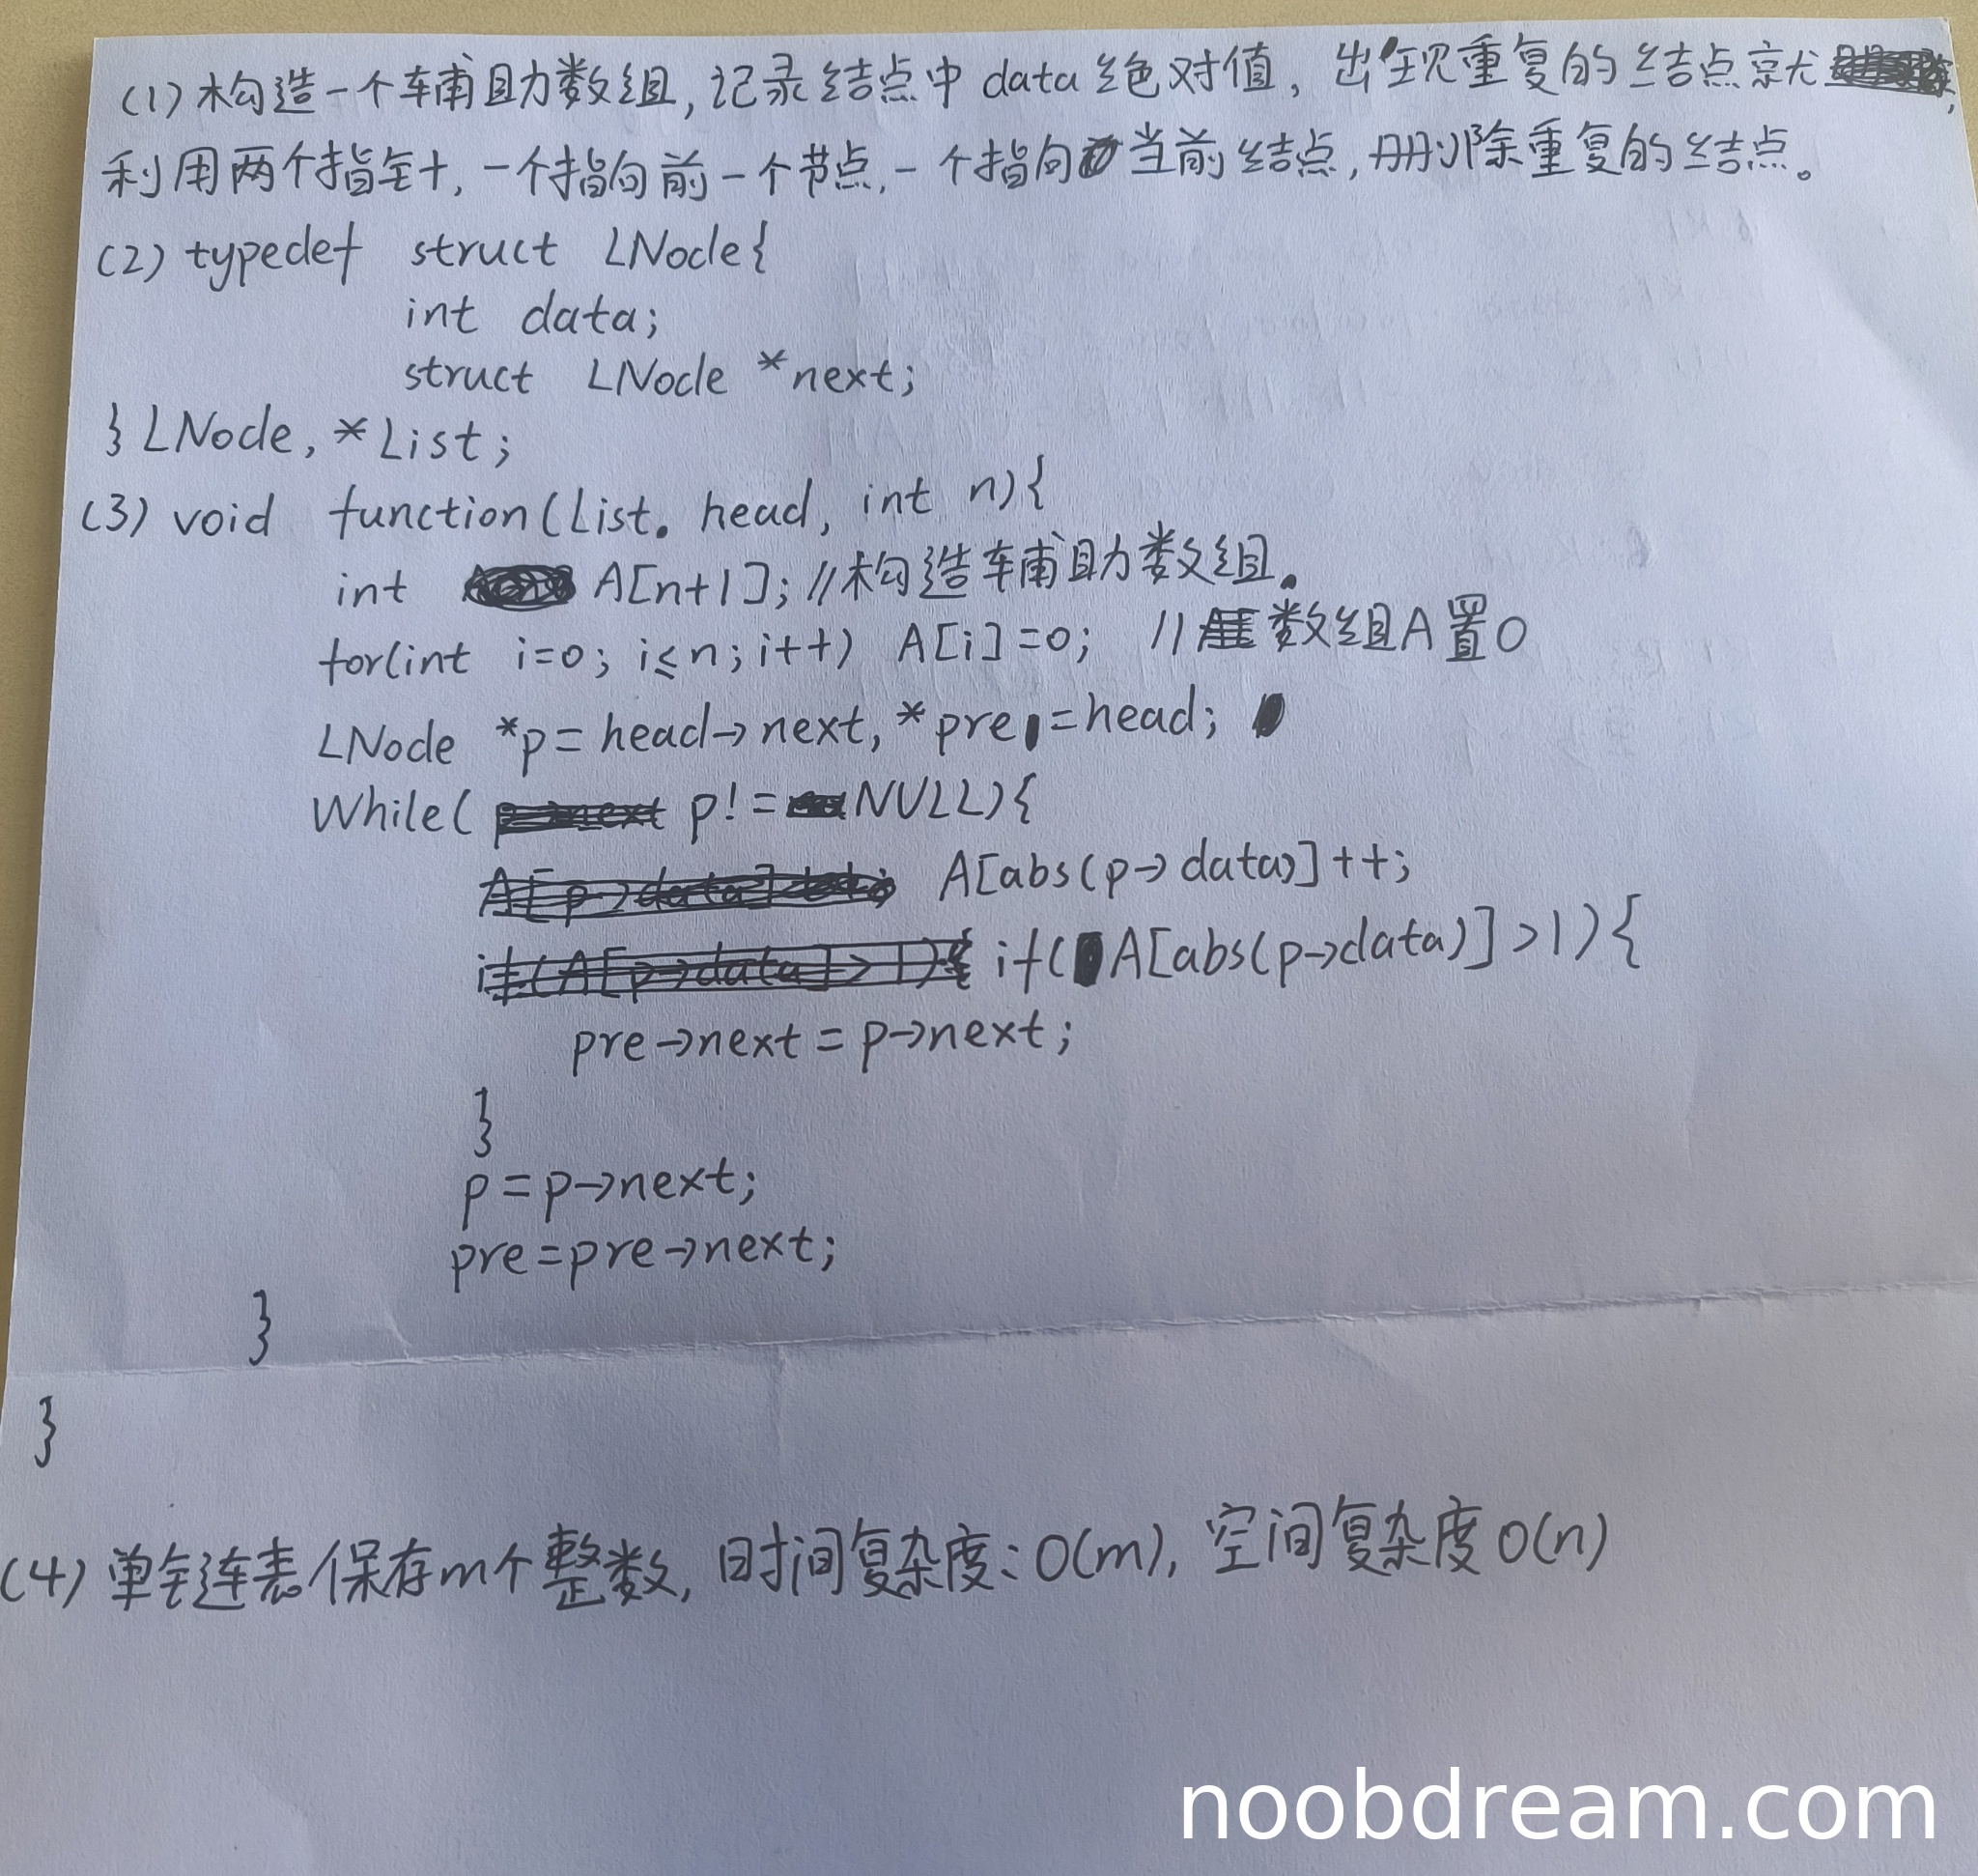 (1)构造一个辅助数组,记录结点中data绝对值,出现重复的结点就,
利用两个指针,一个指向前一个节点,一个指向当前结点,删除重复的结点。
(2) typedef struct LNode{
int data;
struct LNode *next;
}LNode, *List;
(3) void function(List. head, int n){
int A[n+1]; //构造辅助数组.
for(int i=0; i≤n; i++) A[i]=0; //数组A置0
LNode *p=head→next, *pre=head;
While( p!=NULL){
A[abs(p→data)]++;
if(A[abs(p→data)]>1){
pre→next = p→next;
}
p=p→next;
pre=pre→next;
}
}
(4) 单链表保存m个整数, 时间复杂度:O(m), 空间复杂度O(n)
noobdream.com